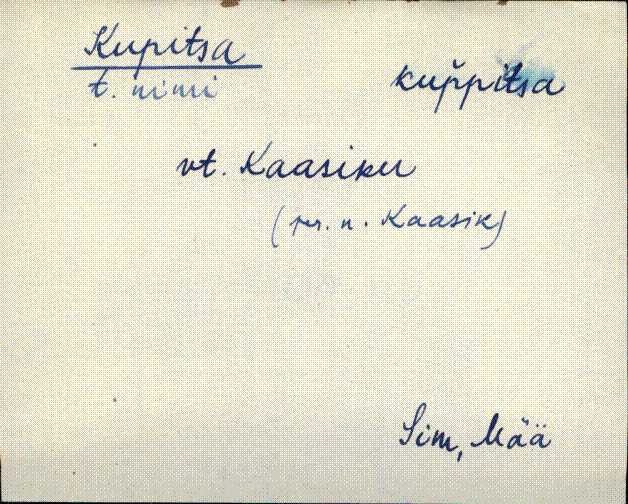 Kupitsa
t. nimi
kup̆pitsa
vt. Kaasiku
(per. n. Kaasik)
Sim, Mää